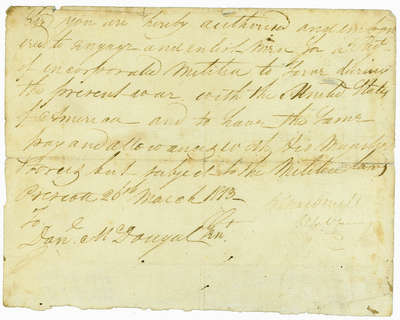 Sir you are hereby authorised and empow
ered to engage and enlist Men for a Regt
of incorporated Militia to Serve during
the present war with the United States
of America and to have the same
pay and allowances with His Majestys
Troops but subject to the Militia laws
Prescott 20th March 1813
To
Danl. McDougal Lieut.